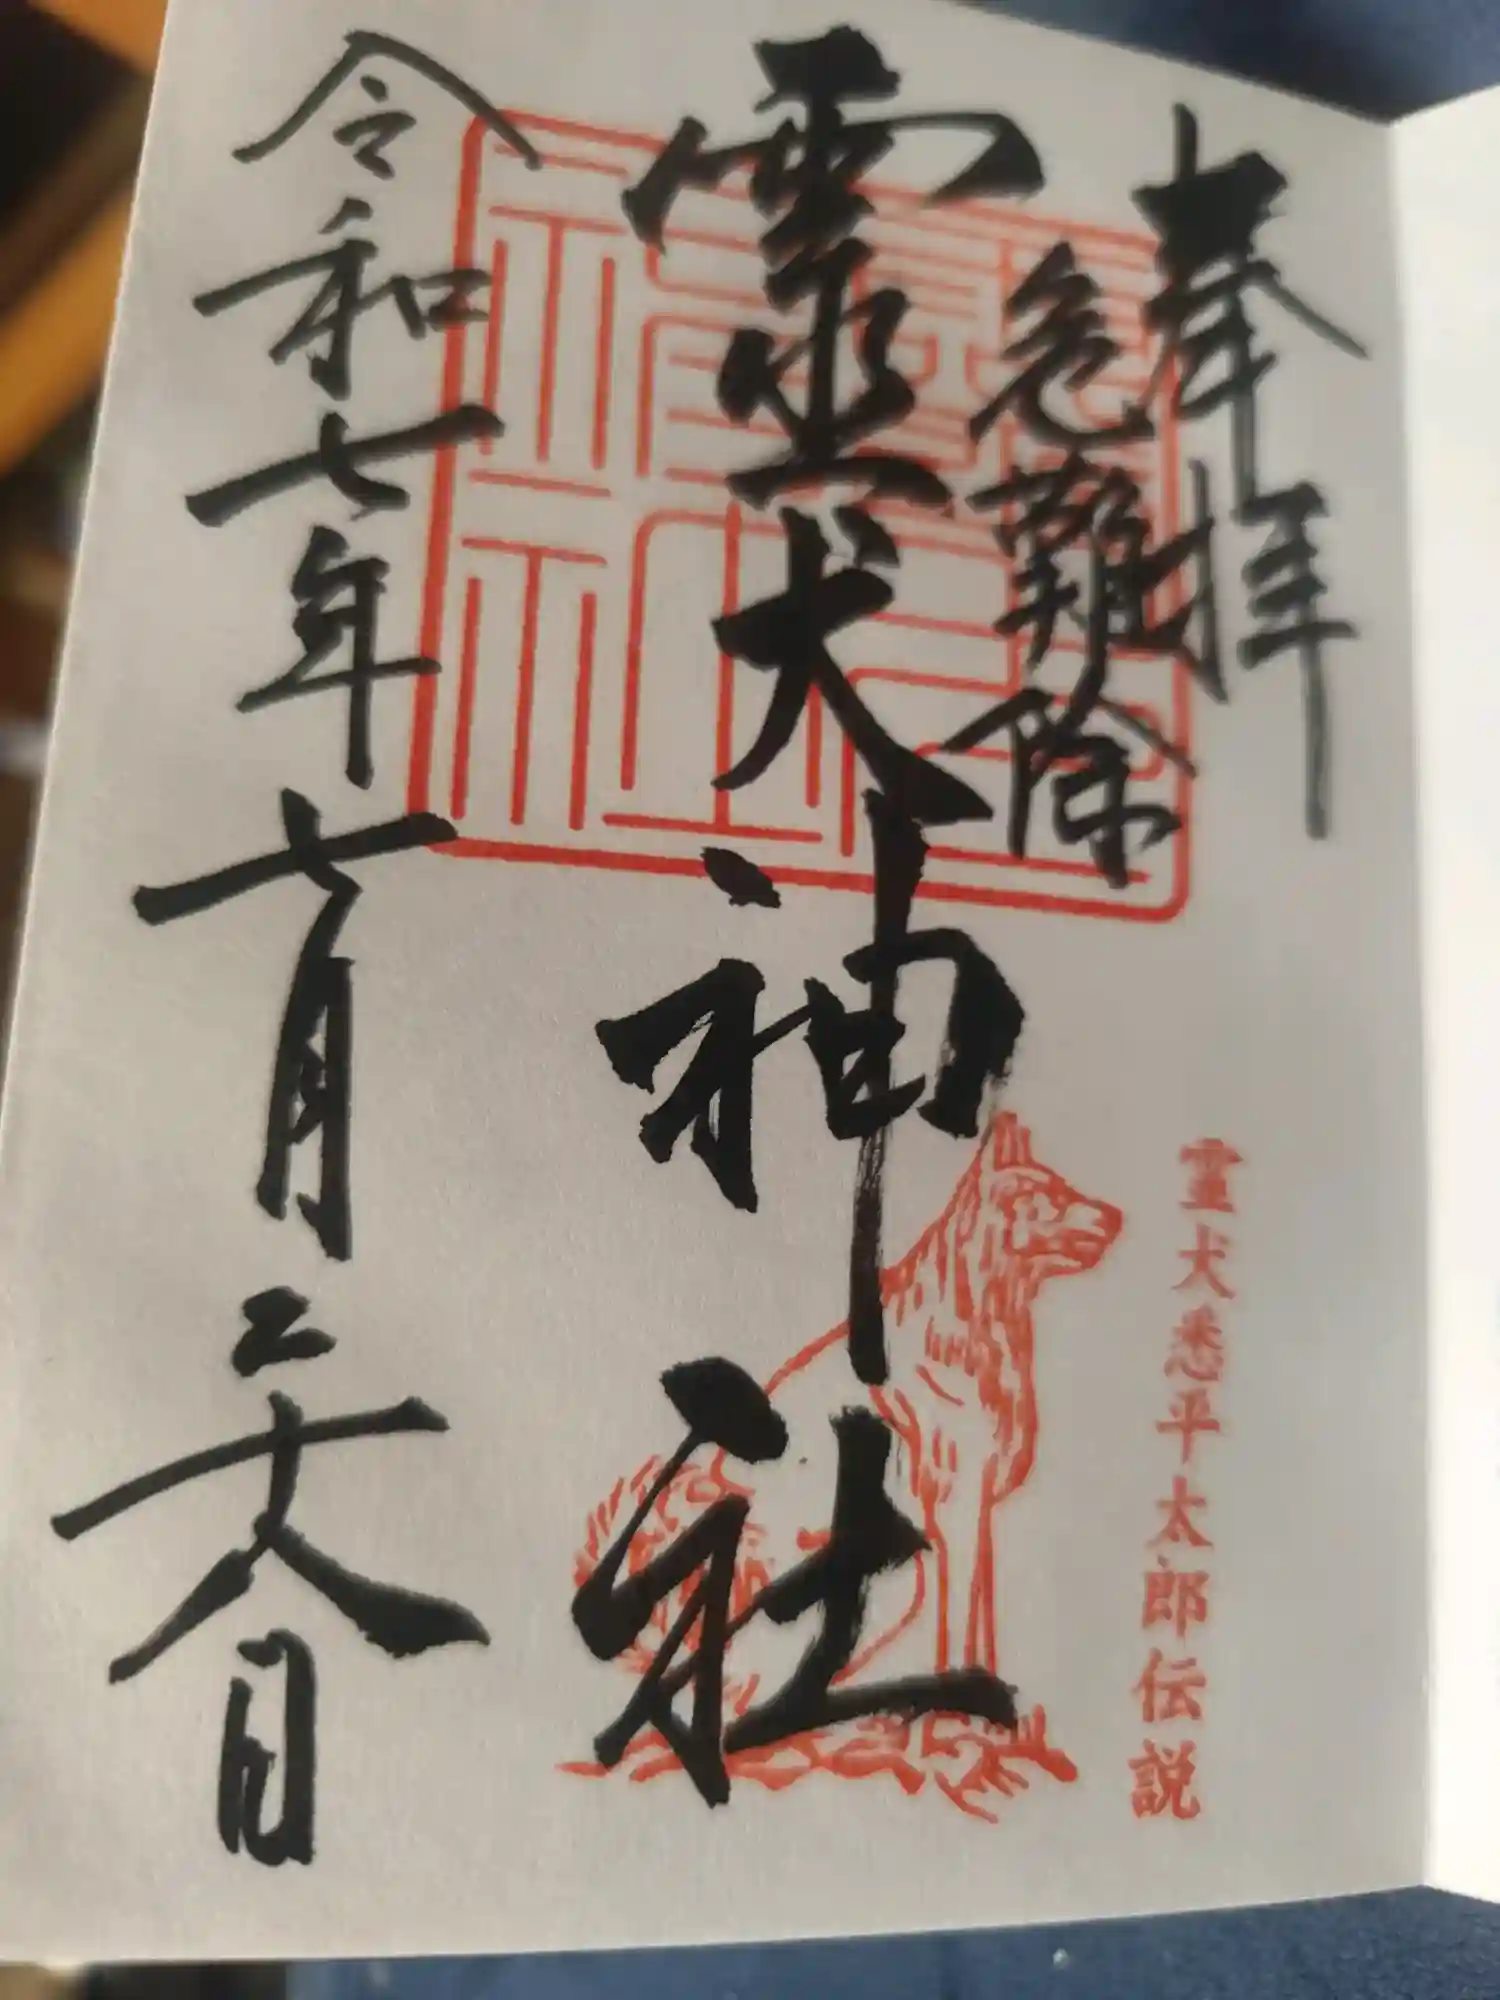 奉拝
危難除
霊犬神社
霊犬悉平太郎伝説
令和七年七月二十八日